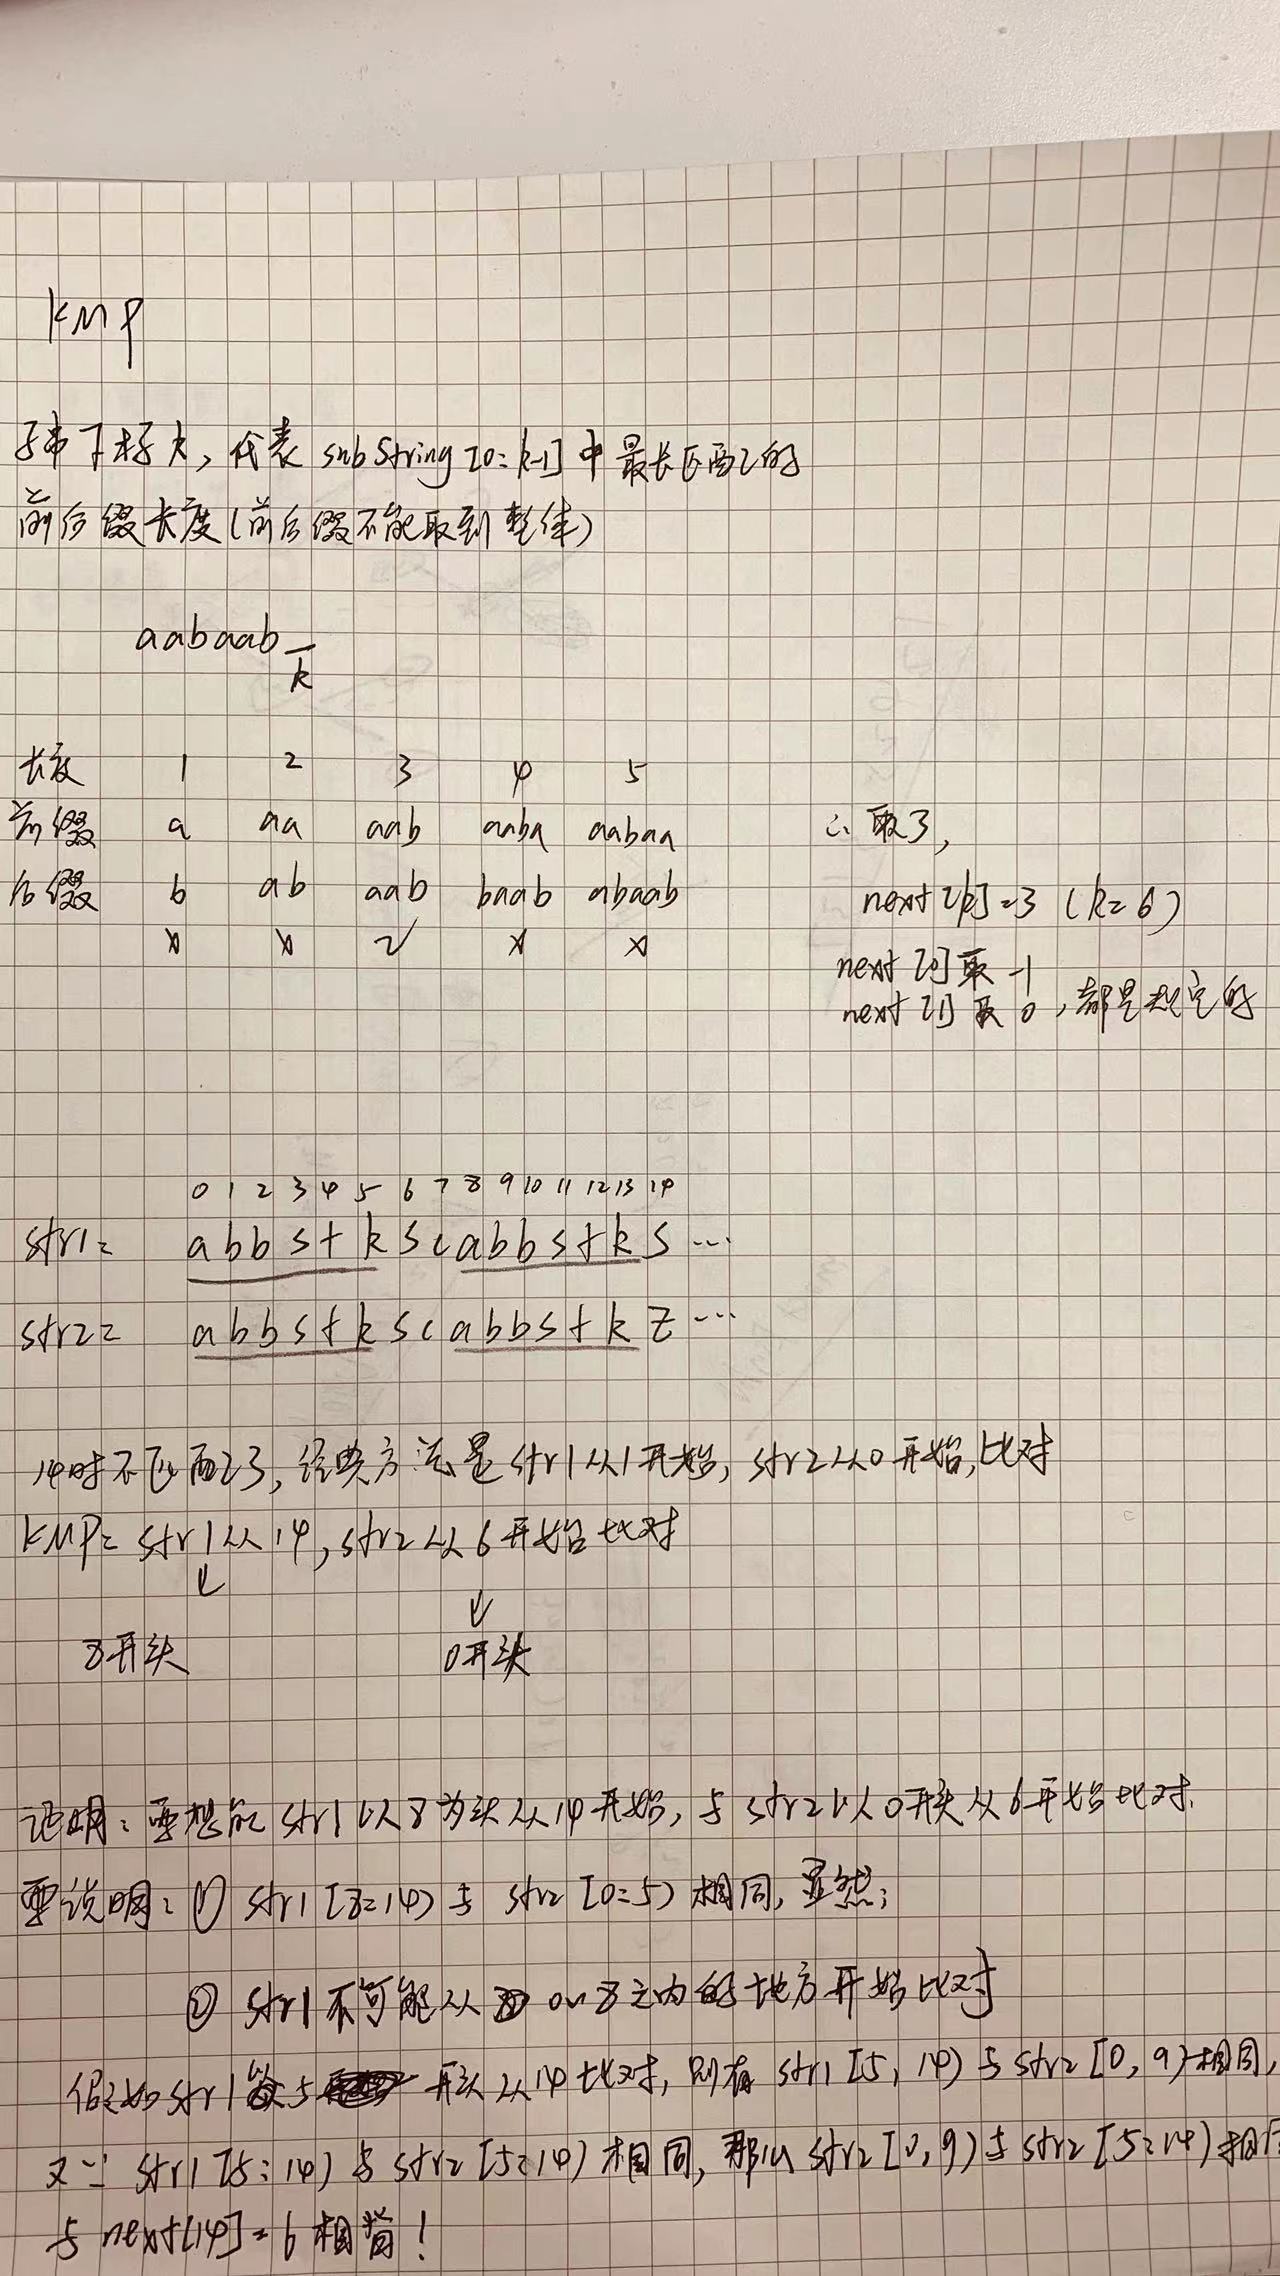 KMP
子串下标k，代表 subString[0:k-1]中最长匹配的
前后缀长度(前后缀不能取到整体)
aabaab_
k
长度 1 2 3 4 5
前缀 a aa aab aaba aabaa ∴ 取3，
后缀 b ab aab baab abaab next[k]=3 (k=6)
× × √ × × next[0]取 -1
next[1]取 0，都是规定的
0 1 2 3 4 5 6 7 8 9 10 11 12 13 14
str1: abbstkscabbstks …
str2: abbstkscabbstkz …
14时不匹配了，经典方法是str1从1开始，str2从0开始，比对
KMP: str1从14，str2从6开始比对
↓ ↓
8开头 0开头
证明：要想能str1以8为头从14开始，与str2以0开头从6开始比对.
要说明：① str1[8:14)与 str2[0:5)相同，显然；
② str1不可能从 0~8之内的地方开始比对
假如str1 5 开头从14比对，则有str1[5,14)与str2[0,9)相同，
又∵ str1[5:14)与str2[5:14)相同，那么str2[0,9)与str2[5:14)相同
与next[14]=6相背！